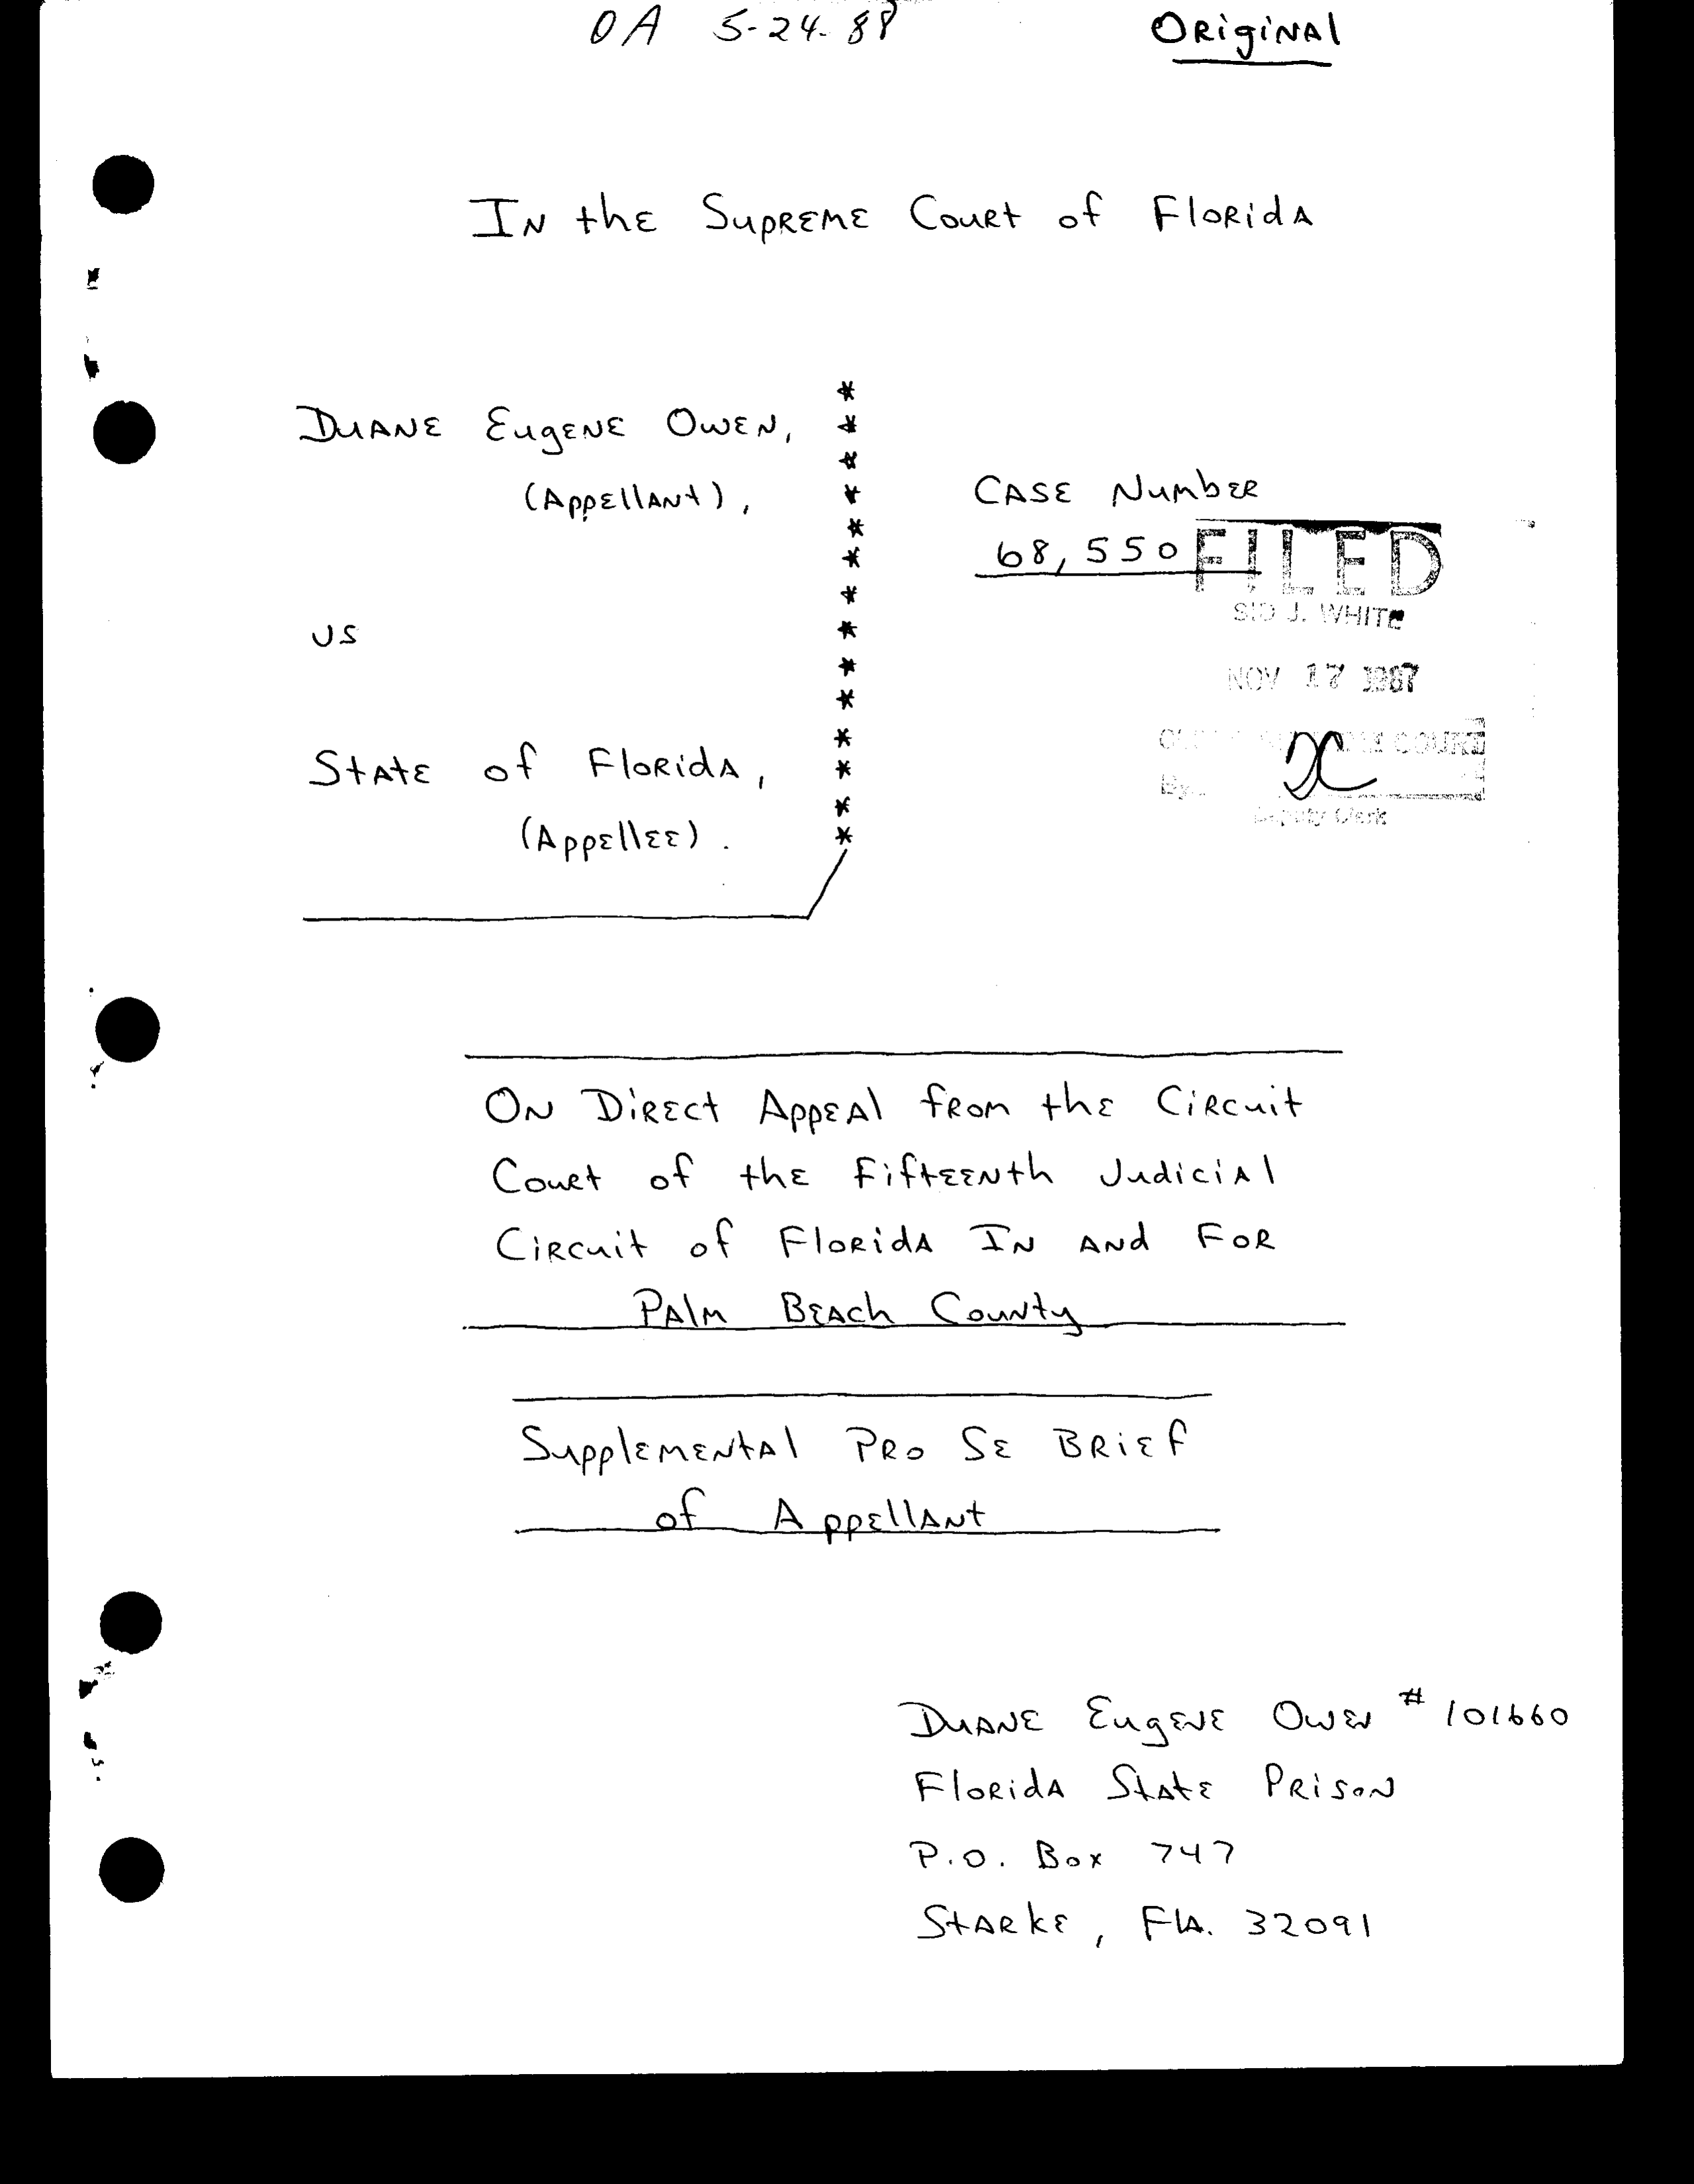 OA 5-24-88 Original
In the Supreme Court of Florida
Duane Eugene Owen,
(Appellant),
vs
State of Florida,
(Appellee).
Case Number
68,550
FILED
SID J. WHITE
NOV 17 1987
COURT
By
Deputy Clerk
On Direct Appeal from the Circuit
Court of the Fifteenth Judicial
Circuit of Florida In and For
Palm Beach County
Supplemental Pro Se Brief
of Appellant
Duane Eugene Owen # 101660
Florida State Prison
P.O. Box 747
Starke, Fla. 32091